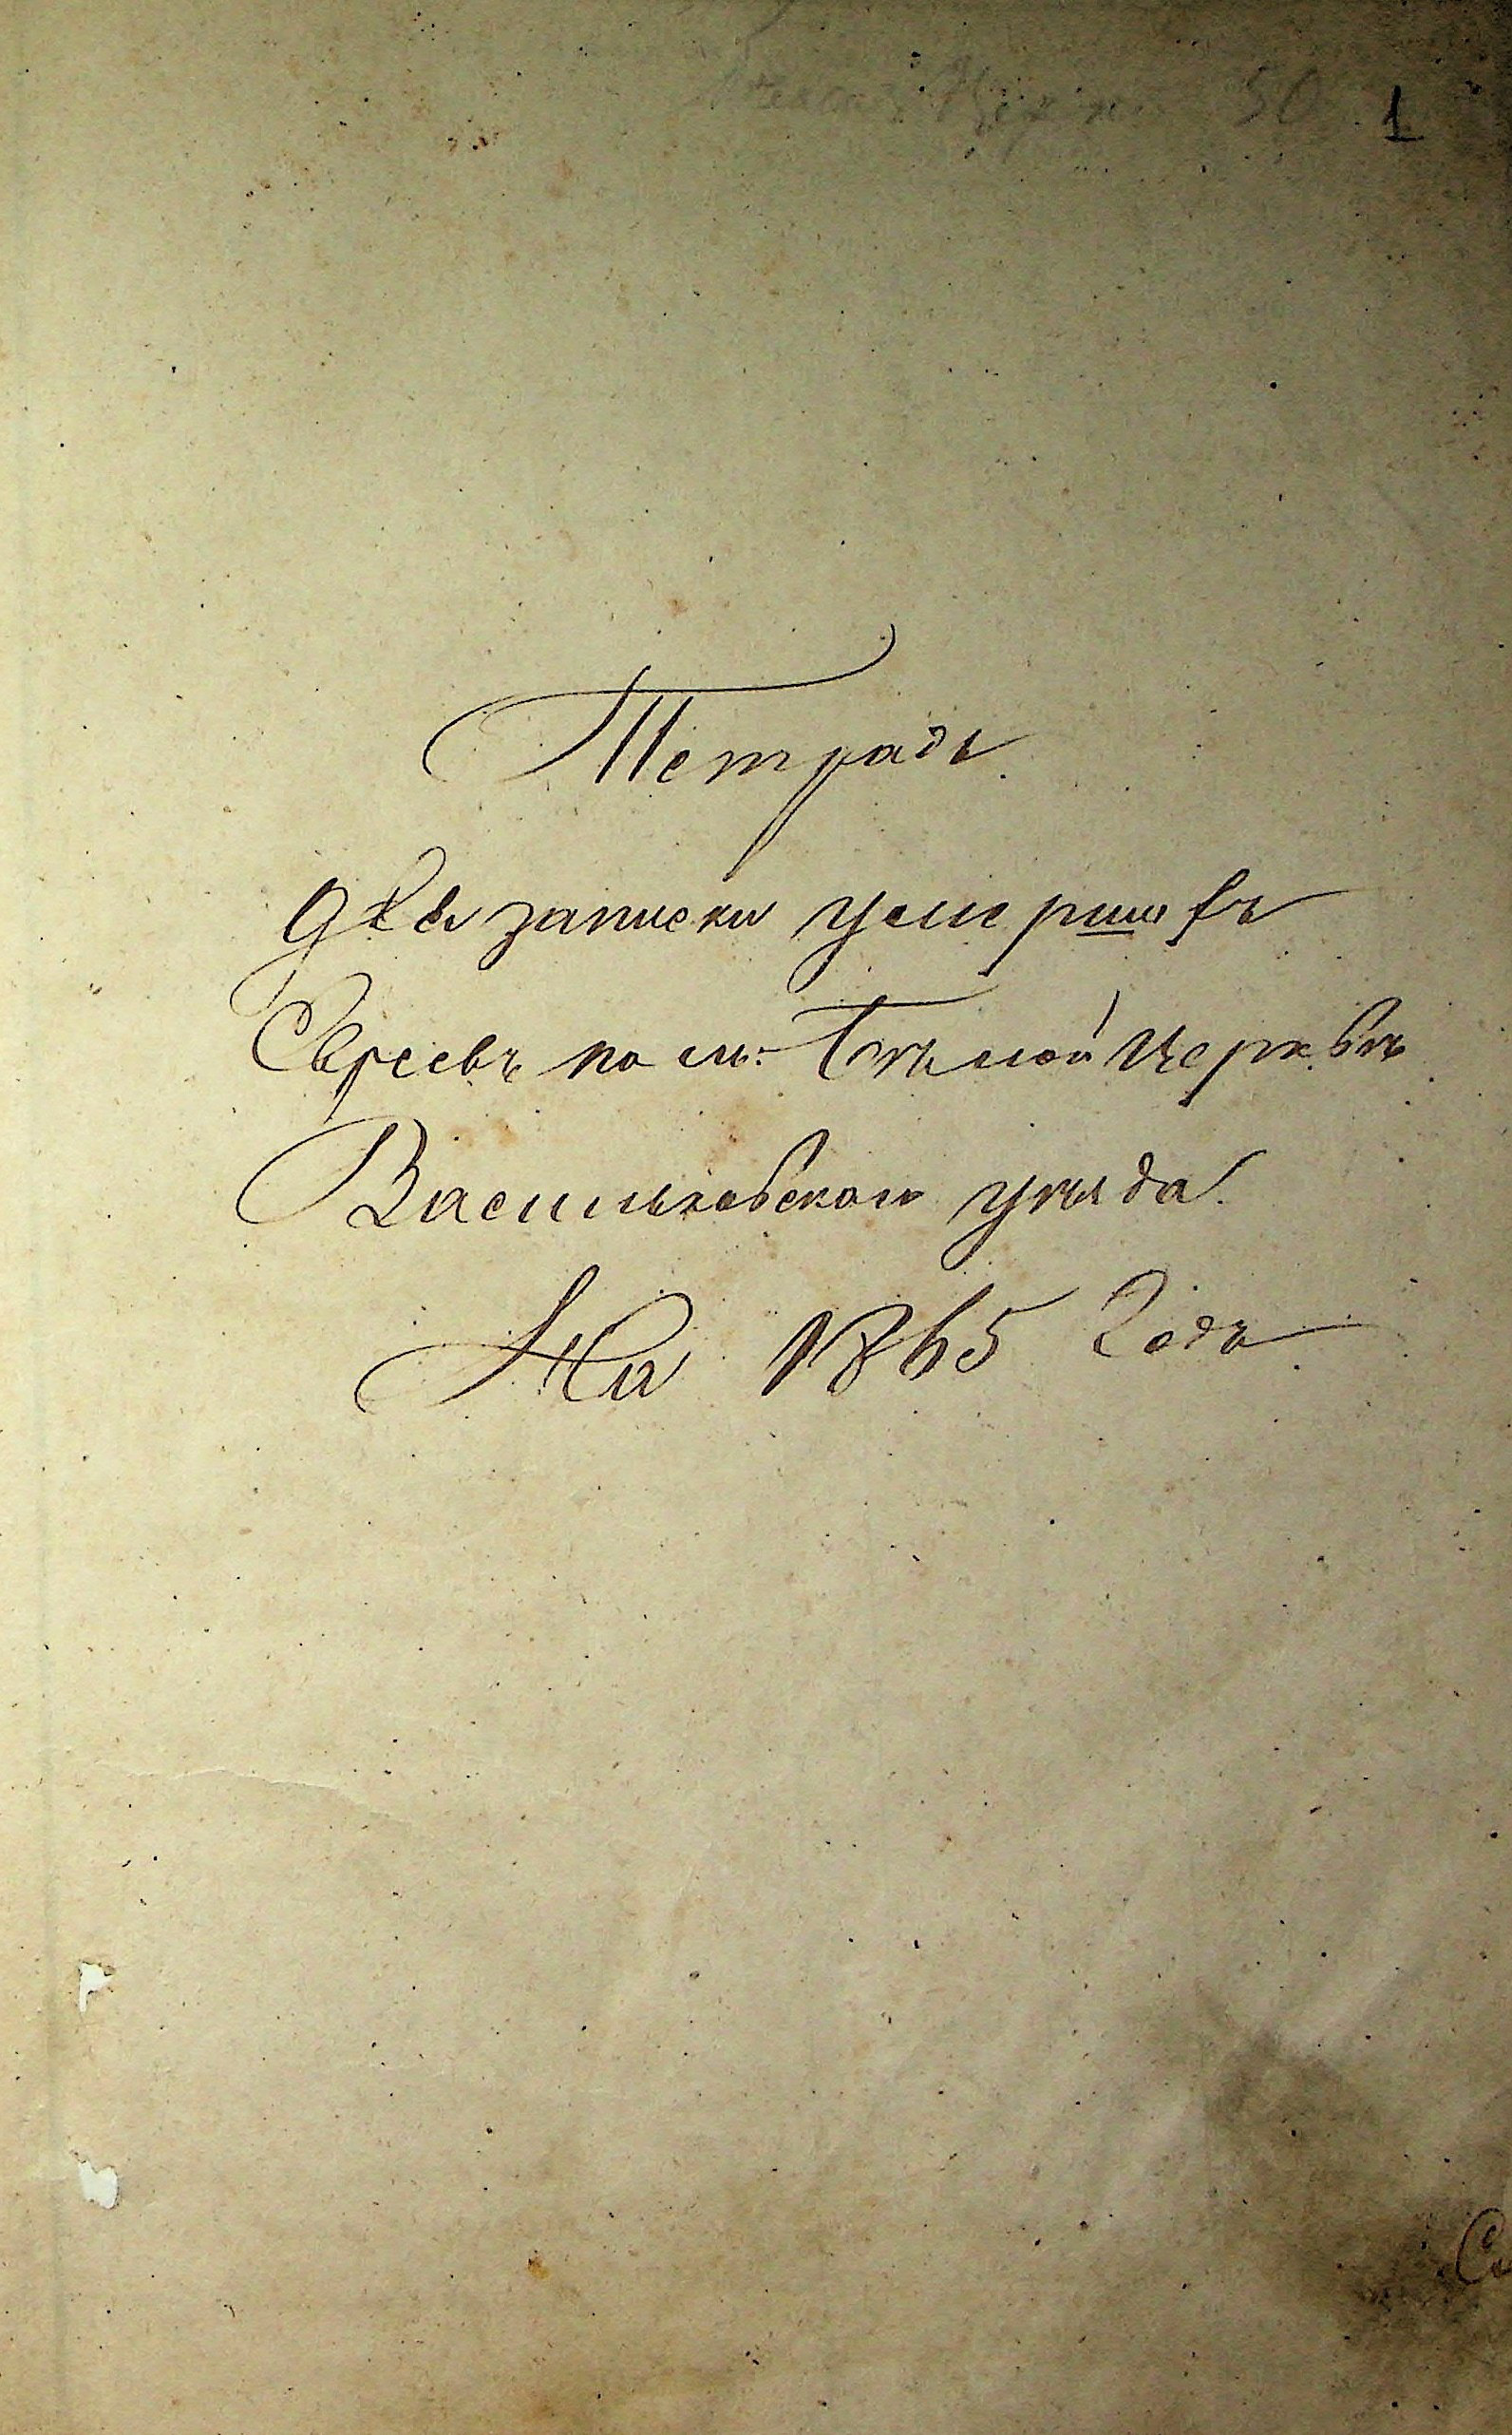 1
Тетрадь
для записки умершихъ
Евреевъ по м: Бѣлой Церквѣ
Васильковскаго уѣзда.
На 1865 Годъ